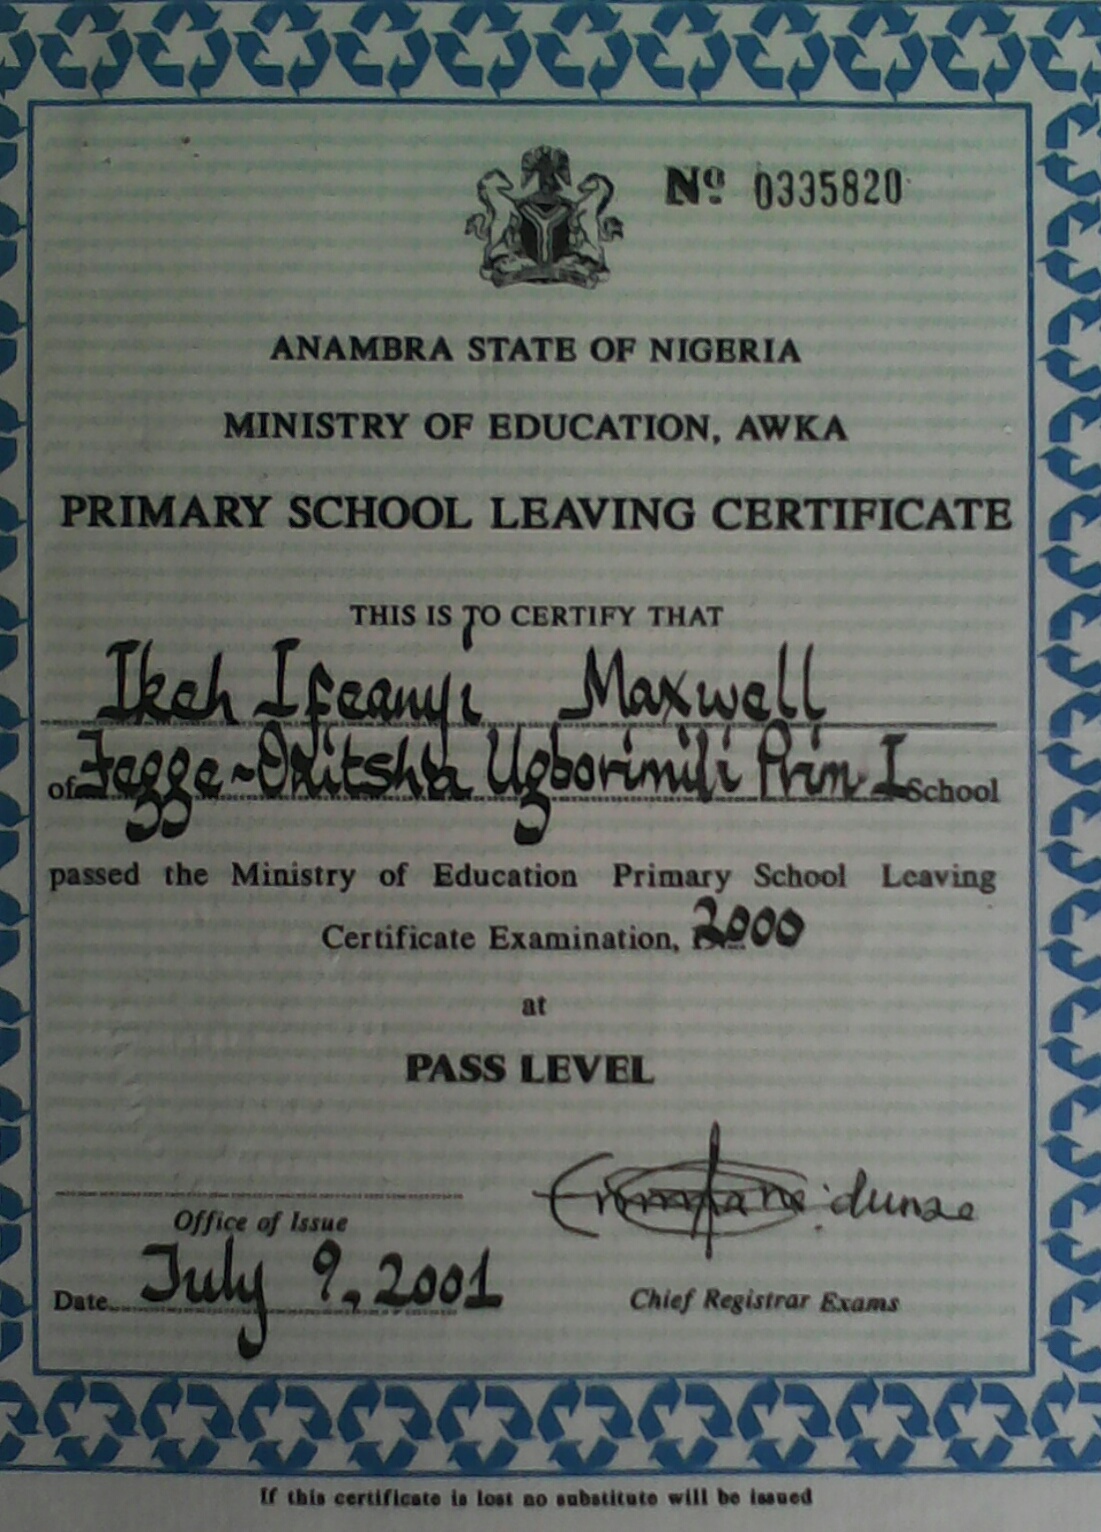 Nº 0335820
ANAMBRA STATE OF NIGERIA
MINISTRY OF EDUCATION, AWKA
PRIMARY SCHOOL LEAVING CERTIFICATE
THIS IS TO CERTIFY THAT
Ikeh Ifeanyi Maxwell
of Fegge-Onitsha Ugborimili Prim I School
passed the Ministry of Education Primary School Leaving
Certificate Examination, 2000
at
PASS LEVEL
Office of Issue
Date July 9, 2001
Chief Registrar Exams
If this certificate is lost no substitute will be issued